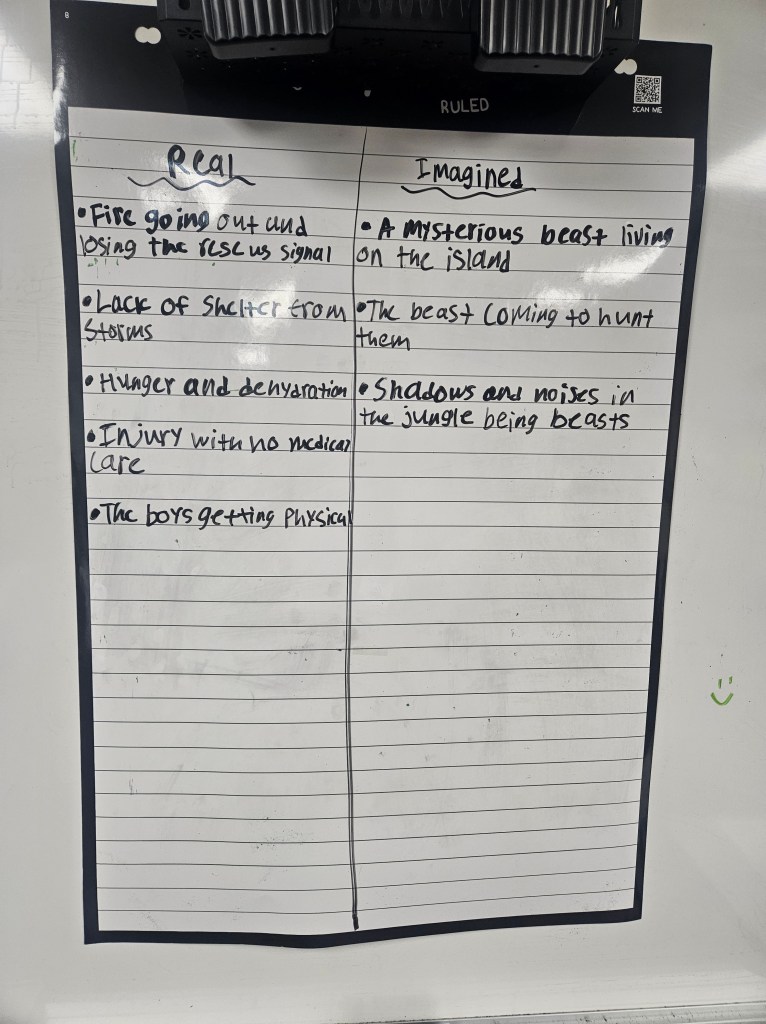 B
RULED
SCAN ME
Real
• Fire going out and
losing the rescus signal
• Lack of shelter from
storms
• Hunger and dehydration
• Injury with no medical
care
• The boys getting physical
Imagined
• A mysterious beast living
on the island
• The beast coming to hunt
them
• Shadows and noises in
the jungle being beasts